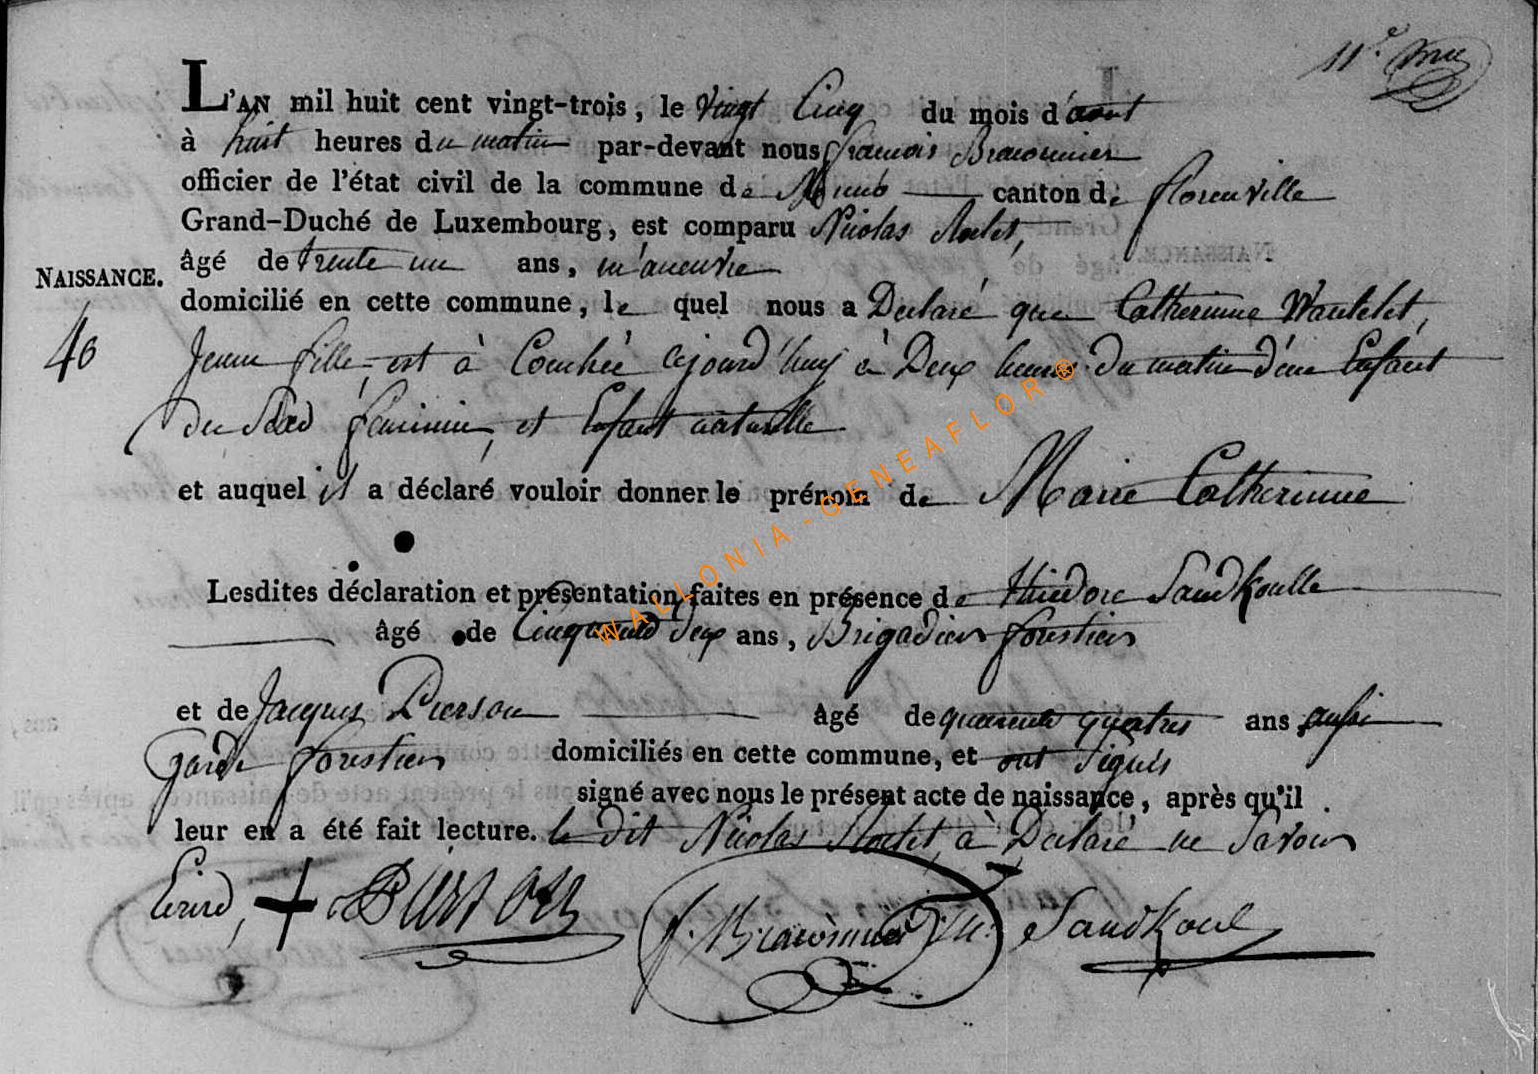 11.e
L'AN mil huit cent vingt-trois, le vingt Cinq du mois d'aout
à huit heures du matin par-devant nous françois Braconnier
officier de l'état civil de la commune de canton de florenville
Grand-Duché de Luxembourg, est comparu Nicolas
âgé de trente un ans, m'aneuvre
NAISSANCE.
domicilié en cette commune, le quel nous a Declaré que Catherinne Wautelet,
46
Jeune fille, est à Couchée cejourd'huy à Deux heures du matin d'une Enfant
du Sexe feminin, et Enfant naturelle
et auquel il a déclaré vouloir donner le prénom de Marie Catherinne
Lesdites déclaration et présentation faites en présence de théodore Sandkoulle
âgé de Cinquante Deux ans, Brigadier forestier
et de Jacques Pierson âgé de quarente quatres ans aussi
garde forestier domiciliés en cette commune, et ont signés
signé avec nous le présent acte de naissance, après qu'il
leur en a été fait lecture. le dit Nicolas à Declaré ne Savoir
Ecrire, + Pierson f. Braconnier Sandkoul
WALLONIA-GENEAFLOR®